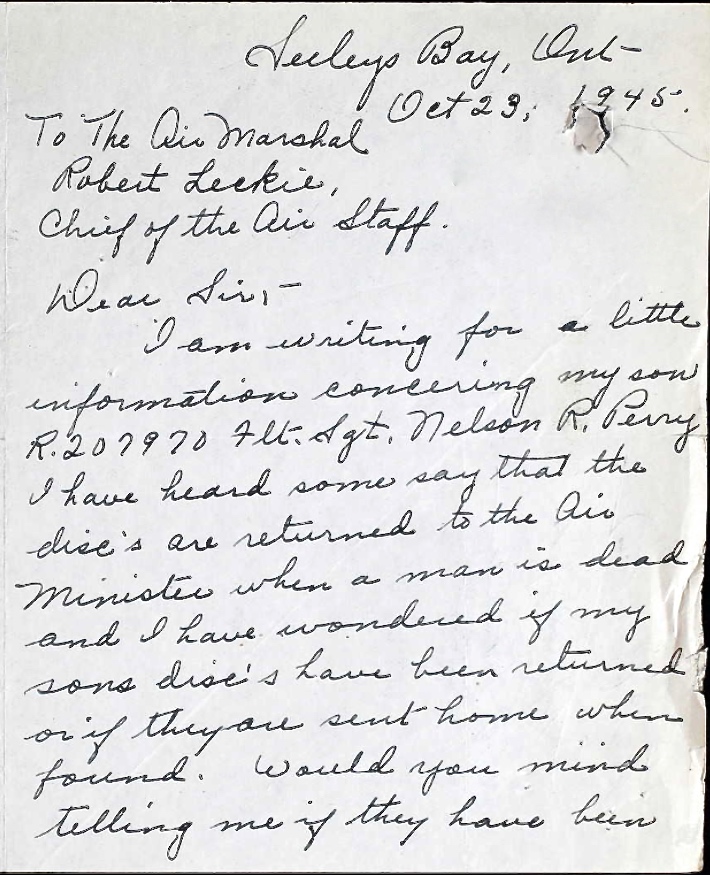 Seeleys Bay, Ont
Oct 23, 1945.
To The Air Marshal
Robert Leckie,
Chief of the Air Staff.
Dear Sir,-
I am writing for a little
information concering my son
R.207970 Flt. Sgt. Nelson R. Perry
I have heard some say that the
disc's are returned to the Air
Minister when a man is dead
and I have wondered if my
sons disc's have been returned
or if they are sent home when
found. Would you mind
telling me if they have been